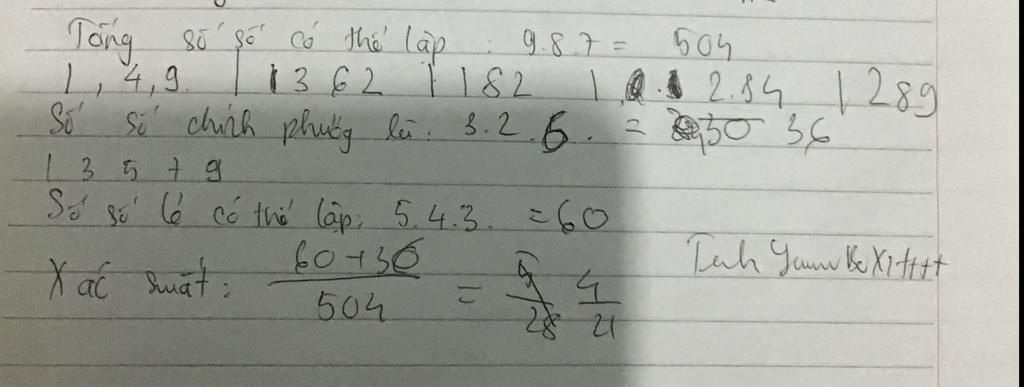 Tổng số số có thể lập : 9.8.7 = 504
1, 4, 9. | 1 3 6 2 | 1 8 2 | 2.84 | 289
Số số chính phương là. 3.2.6. = 36
1 3 5 7 9
Số số lẻ có thể lập: 5.4.3. = 60
Xác suất: 60+36/504 = 5/28 4/21